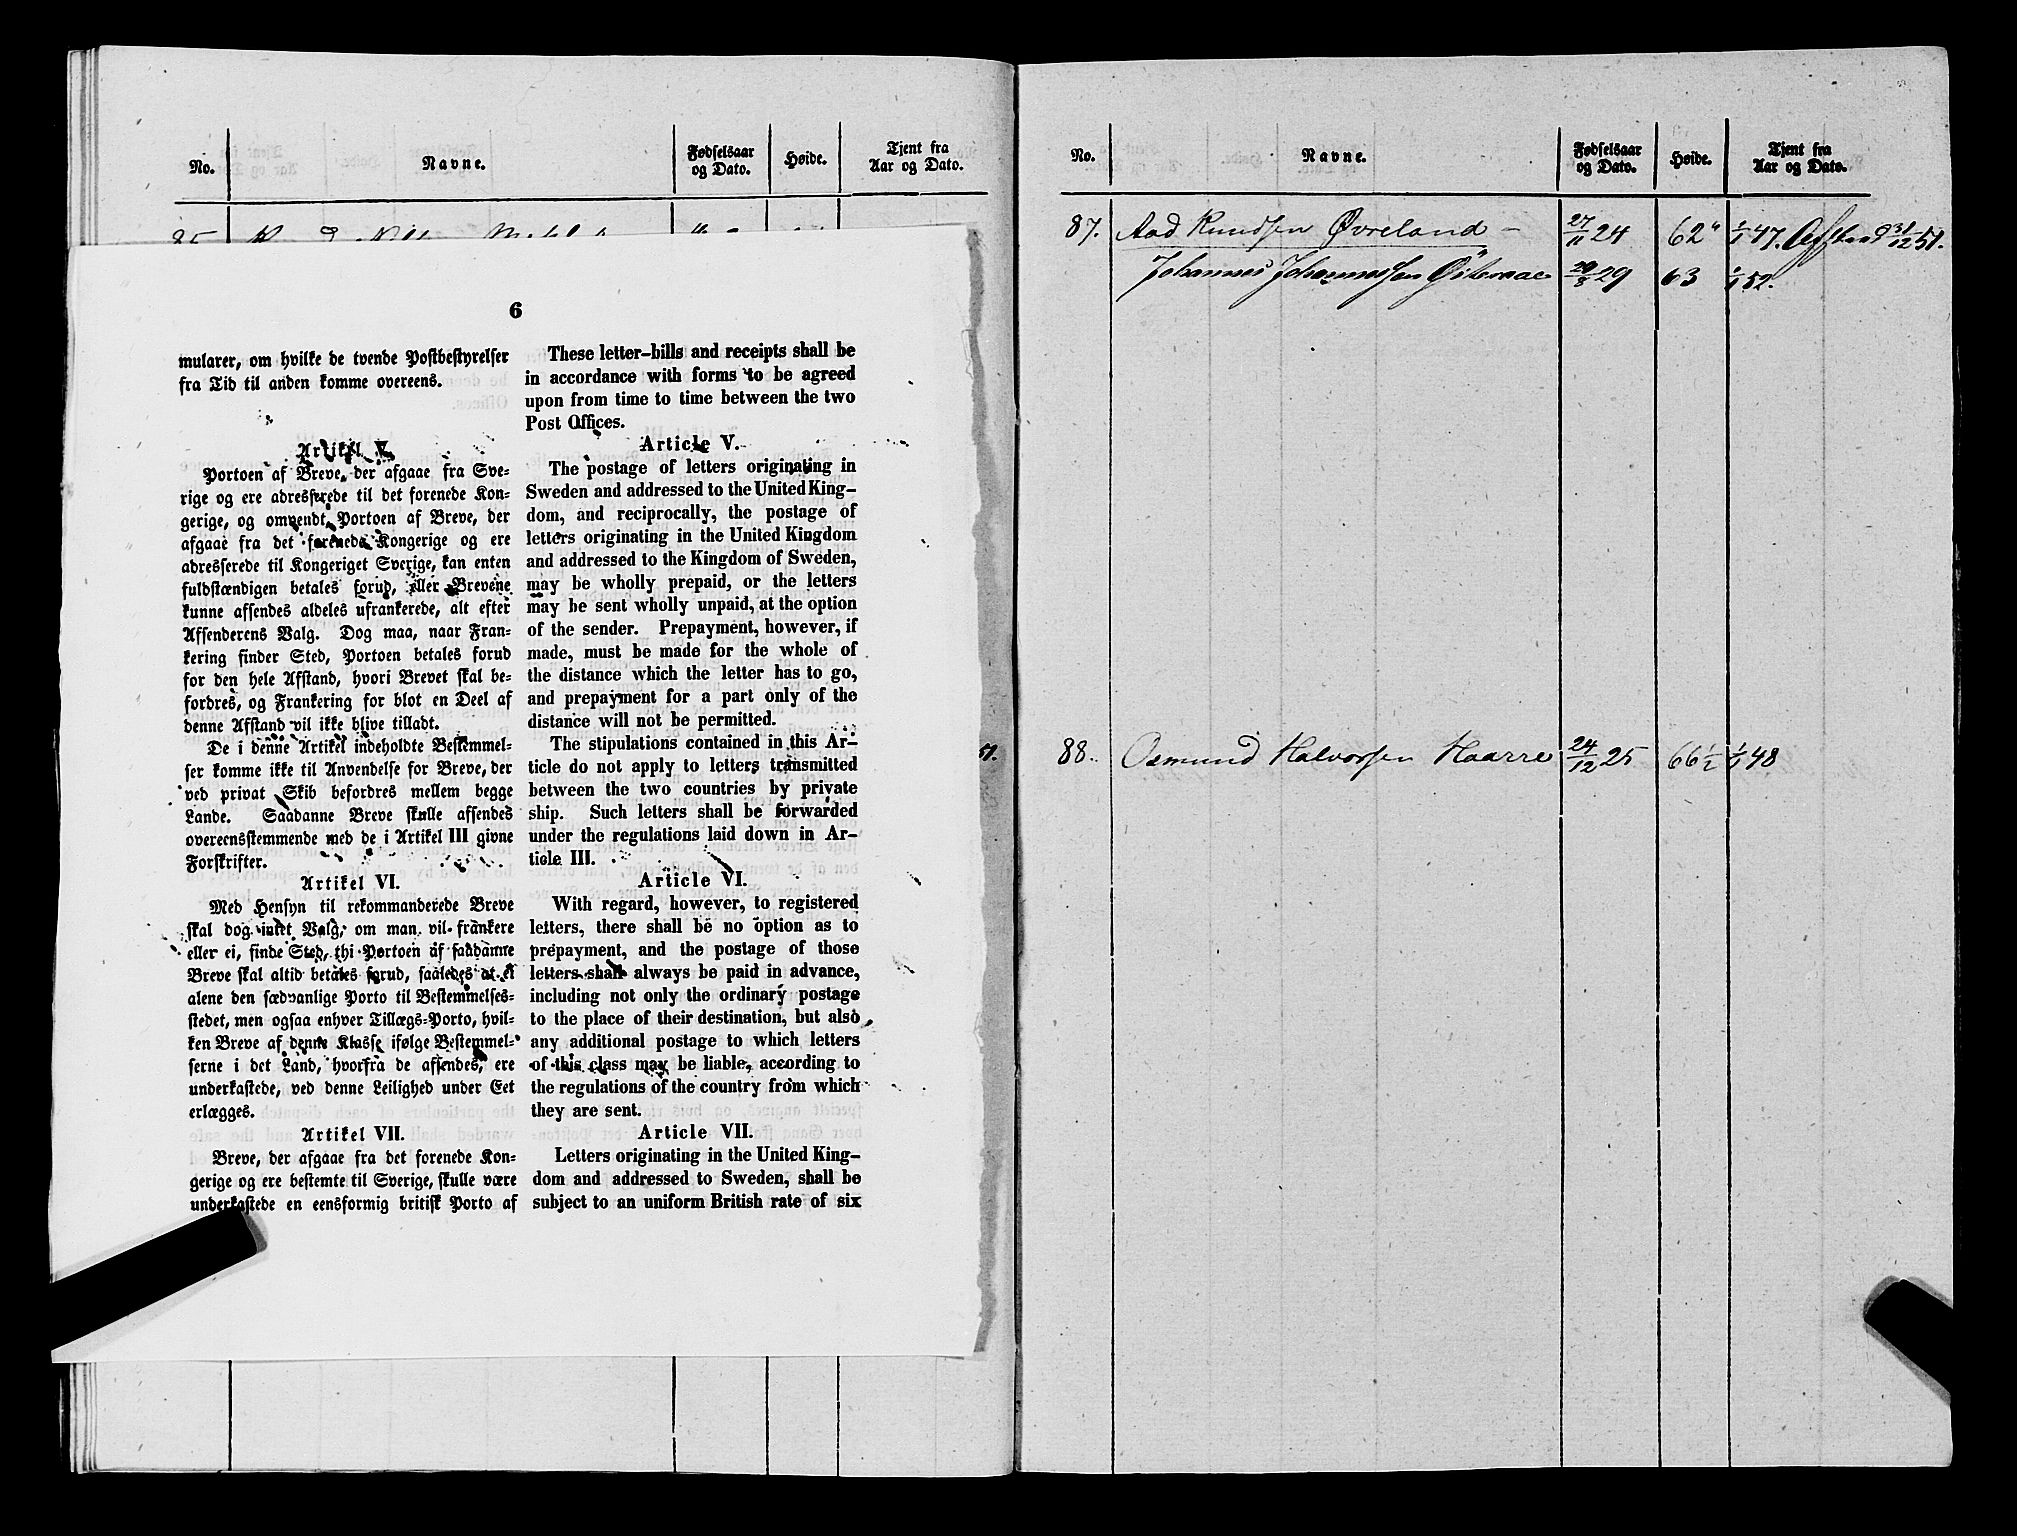 No.
Navne.
Fødselsaar
og Dato.
Høide.
Tjent fra
Aar og Dato.
85
6
mularer, om hvilke de tvende Postbestyrelser
fra Tid til anden komme overeens.
Artikel V.
Portoen af Breve, der afgaae fra Sve-
rige og ere adresserede til det forenede Kon-
gerige, og omvendt Portoen af Breve, der
afgaae fra det forenede Kongerige og ere
adresserede til Kongeriget Sverige, kan enten
fuldstændigen betales forud, eller Brevene
kunne afsendes aldeles ufrankerede, alt efter
Afsenderens Valg. Dog maa, naar Fran-
kering finder Sted, Portoen betales forud
for den hele Afstand, hvori Brevet skal be-
fordres, og Frankering for blot en Deel af
denne Afstand vil ikke blive tilladt.
De i denne Artikel indeholdte Bestemmel-
ser komme ikke til Anvendelse for Breve, der
ved privat Skib befordres mellem begge
Lande. Saadanne Breve skulle afsendes
overeensstemmende med de i Artikel III givne
Forskrifter.
Artikel VI.
Med Hensyn til rekommanderede Breve
skal dog intet Valg, om man vil frankere
eller ei, finde Sted, thi Portoen af saadanne
Breve skal altid betales forud, saaledes at ei
alene den sædvanlige Porto til Bestemmelses-
stedet, men ogsaa enhver Tillægs-Porto, hvil-
ken Breve af denne Klasse ifølge Bestemmel-
serne i det Land, hvorfra de afsendes, ere
underkastede, ved denne Leilighed under Eet
erlægges.
Artikel VII.
Breve, der afgaae fra det forenede Kon-
gerige og ere bestemte til Sverige, skulle være
underkastede en eensformig britisk Porto af
These letter-bills and receipts shall be
in accordance with forms to be agreed
upon from time to time between the two
Post Offices.
Article V.
The postage of letters originating in
Sweden and addressed to the United King-
dom, and reciprocally, the postage of
letters originating in the United Kingdom
and addressed to the Kingdom of Sweden,
may be wholly prepaid, or the letters
may be sent wholly unpaid, at the option
of the sender. Prepayment, however, if
made, must be made for the whole of
the distance which the letter has to go,
and prepayment for a part only of the
distance will not be permitted.
The stipulations contained in this Ar-
ticle do not apply to letters transmitted
between the two countries by private
ship. Such letters shall be forwarded
under the regulations laid down in Ar-
ticle III.
Article VI.
With regard, however, to registered
letters, there shall be no option as to
prepayment, and the postage of those
letters shall always be paid in advance,
including not only the ordinary postage
to the place of their destination, but also
any additional postage to which letters
of this class may be liable, according to
the regulations of the country from which
they are sent.
Article VII.
Letters originating in the United King-
dom and addressed to Sweden, shall be
subject to an uniform British rate of six
51.
No.
Navne.
Fødselsaar
og Dato.
Høide.
Tjent fra
Aar og Dato.
87. Aad Knudsen Øvreland - 27/11 24 62" 1/1 47. Afskeed 31/12 51.
Johannes Johannessen 29 63 1/1 52.
88. Osmund Halvorsen Haarre 24/12 25 66 1/2 1/1 48